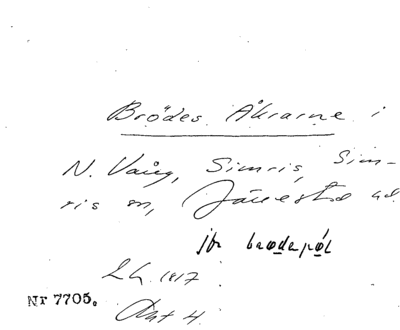 Brödes Åkrarne i
N. Vång, Simris, Sim-
ris sn, Järrestad hd.
jfr brødapøl
LG. 1817
Akt 4
Nr 7705.